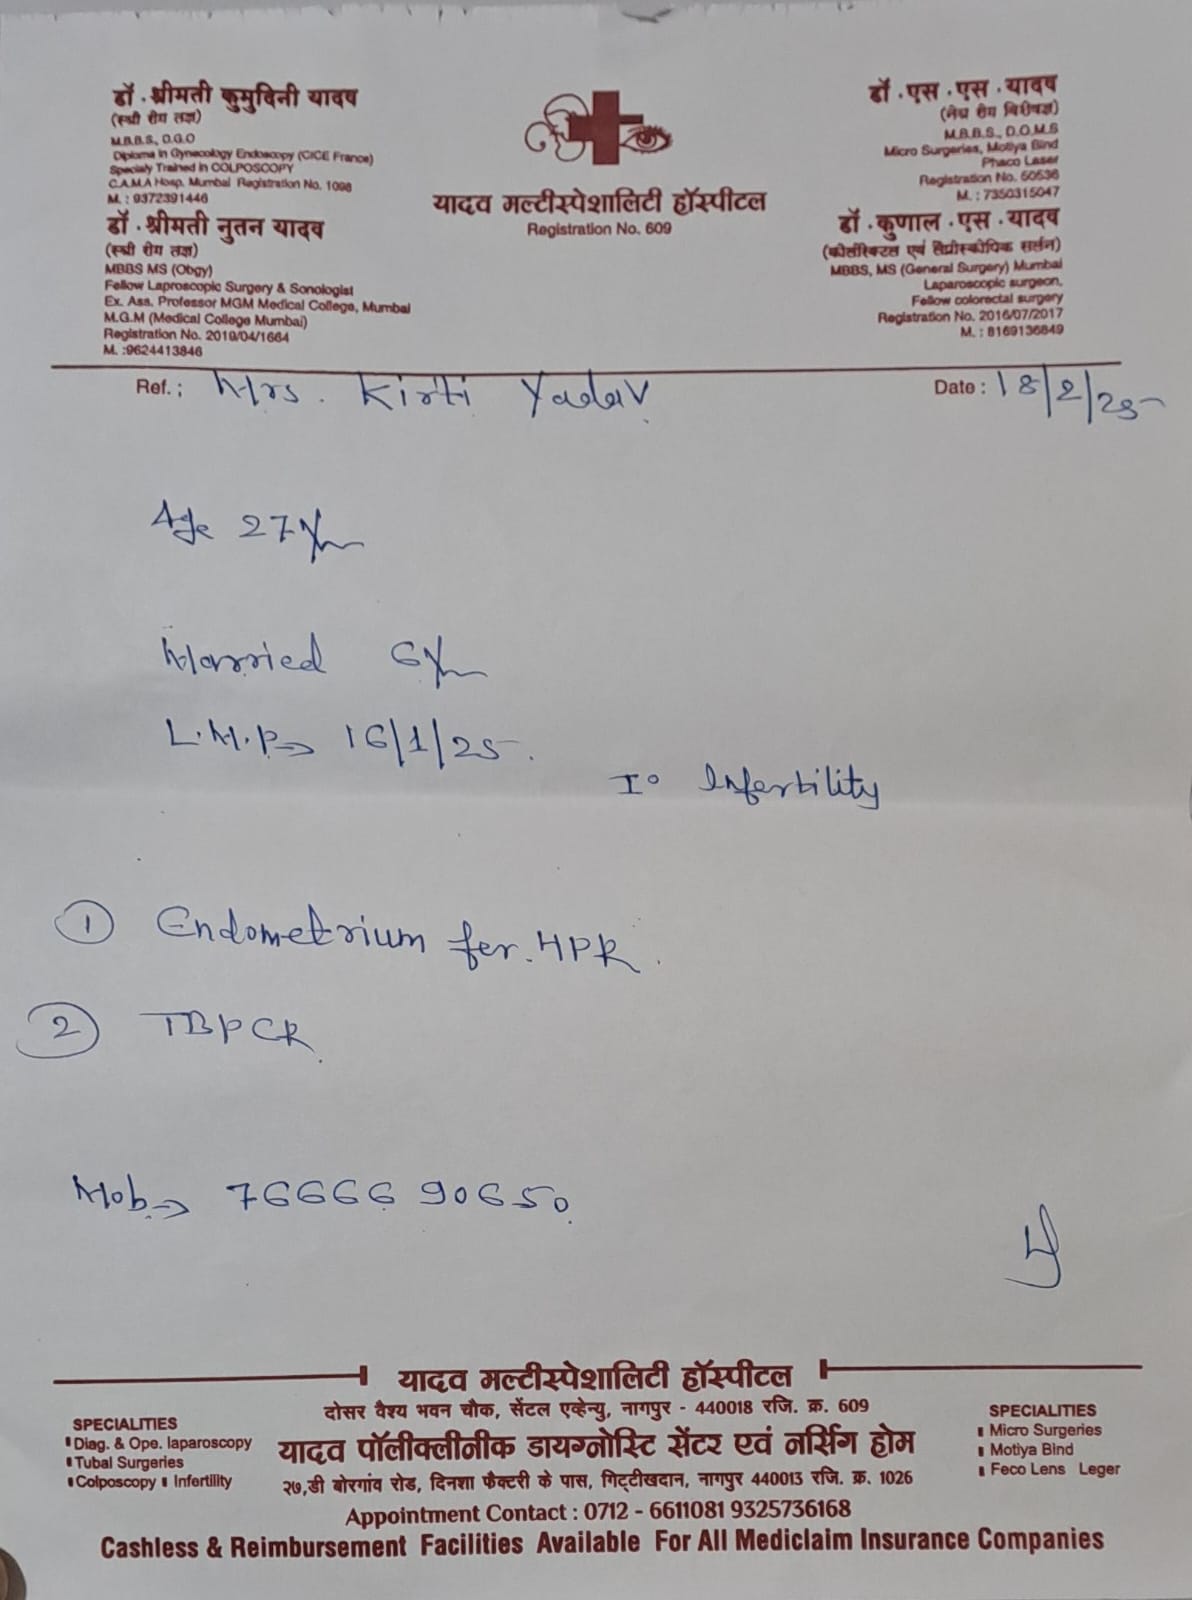 डॉ. श्रीमती कुमुदिनी यादव
(स्त्री रोग तज्ञ)
M.B.B.S., D.G.O
Diploma in Gynecology Endoscopy (CICE France)
Specialy Trained in COLPOSCOPY
C.A.M.A Hosp. Mumbai Registration No. 1098
M. : 9372391446
डॉ. श्रीमती नुतन यादव
(स्त्री रोग तज्ञ)
MBBS MS (Obgy)
Fellow Laproscopic Surgery & Sonologist
Ex. Ass. Professor MGM Medical College, Mumbai
M.G.M (Medical College Mumbai)
Registration No. 2019/04/1664
M. :9624413846
यादव मल्टीस्पेशालिटी हॉस्पीटल
Registration No. 609
डॉ. एस. एस. यादव
(नेत्र रोग विशेषज्ञ)
M.B.B.S., D.O.M.S
Micro Surgeries, Motiya Bind
Phaco Laser
Registration No. 50536
M. : 7350315047
डॉ. कुणाल. एस. यादव
(कोलोरेक्टल एवं लेप्रोस्कोपिक सर्जन)
MBBS, MS (General Surgery) Mumbai
Laparoscopic surgeon,
Fellow colorectal surgery
Registration No. 2016/07/2017
M. : 8169136849
Ref. : Mrs. Kirti Yadav
Date : 18/2/25
Age 27 Yrs
Married 6 Yrs
L.M.P→ 16/1/25.
I° Infertility
① Endometrium for HPR.
② TBPCR
Mob→ 76666 90650
यादव मल्टीस्पेशालिटी हॉस्पीटल
दोसर वैश्य भवन चौक, सेंटल एव्हेन्यु, नागपुर - 440018 रजि. क्र. 609
यादव पॉलीक्लीनीक डायग्नोस्टि सेंटर एवं नर्सिंग होम
२७,डी बोरगांव रोड, दिनशा फैक्टरी के पास, गिट्टीखदान, नागपुर 440013 रजि. क्र. 1026
Appointment Contact : 0712 - 6611081 9325736168
SPECIALITIES
Diag. & Ope. laparoscopy
Tubal Surgeries
Colposcopy Infertility
SPECIALITIES
Micro Surgeries
Motiya Bind
Feco Lens Leger
Cashless & Reimbursement Facilities Available For All Mediclaim Insurance Companies